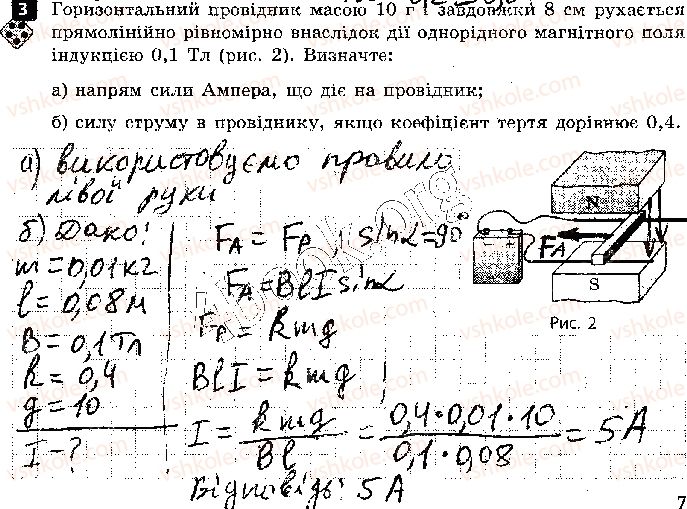 3 Горизонтальний провідник масою 10 г і завдовжки 8 см рухається
прямолінійно рівномірно внаслідок дії однорідного магнітного поля
індукцією 0,1 Тл (рис. 2). Визначте:
а) напрям сили Ампера, що діє на провідник;
б) силу струму в провіднику, якщо коефіцієнт тертя дорівнює 0,4.
а) використовуємо правило
лівої руки
б) Дано:
m = 0,01 кг
l = 0,08 м
B = 0,1 Тл
k = 0,4
g = 10
I - ?
F_A = F_P ; sinα = 90°
F_A = BlI sinα
F_P = kmg
BlI = kmg ;
I = kmg / Bl = 0,4·0,01·10 / 0,1·0,08 = 5 А
Відповідь: 5 А
N
F_A
S
Рис. 2
7
vshkole.com